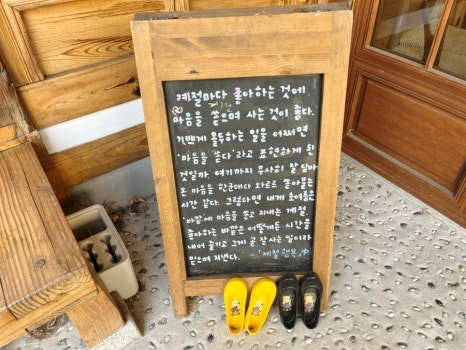 계절마다 좋아하는 것에
마음을 쏟으며 사는 것이 좋다.
기쁘게 몰두하는 일을 어쩌면
'마음을 쏟다'라고 표현하게 된
것일까. 여기까지 무사히 잘 담아
온 마음을 한군데다 와르르 쏟아붓는
시간 같다. 그렇다면 내게 초여름은
'바깥'에 마음을 쏟고 지내는 계절.
좋아하는 바깥은 어떻게든 시간을
내어 즐기고 그게 곧 잘 사는 일이라
믿으며 지낸다.
'제철 행복' 中